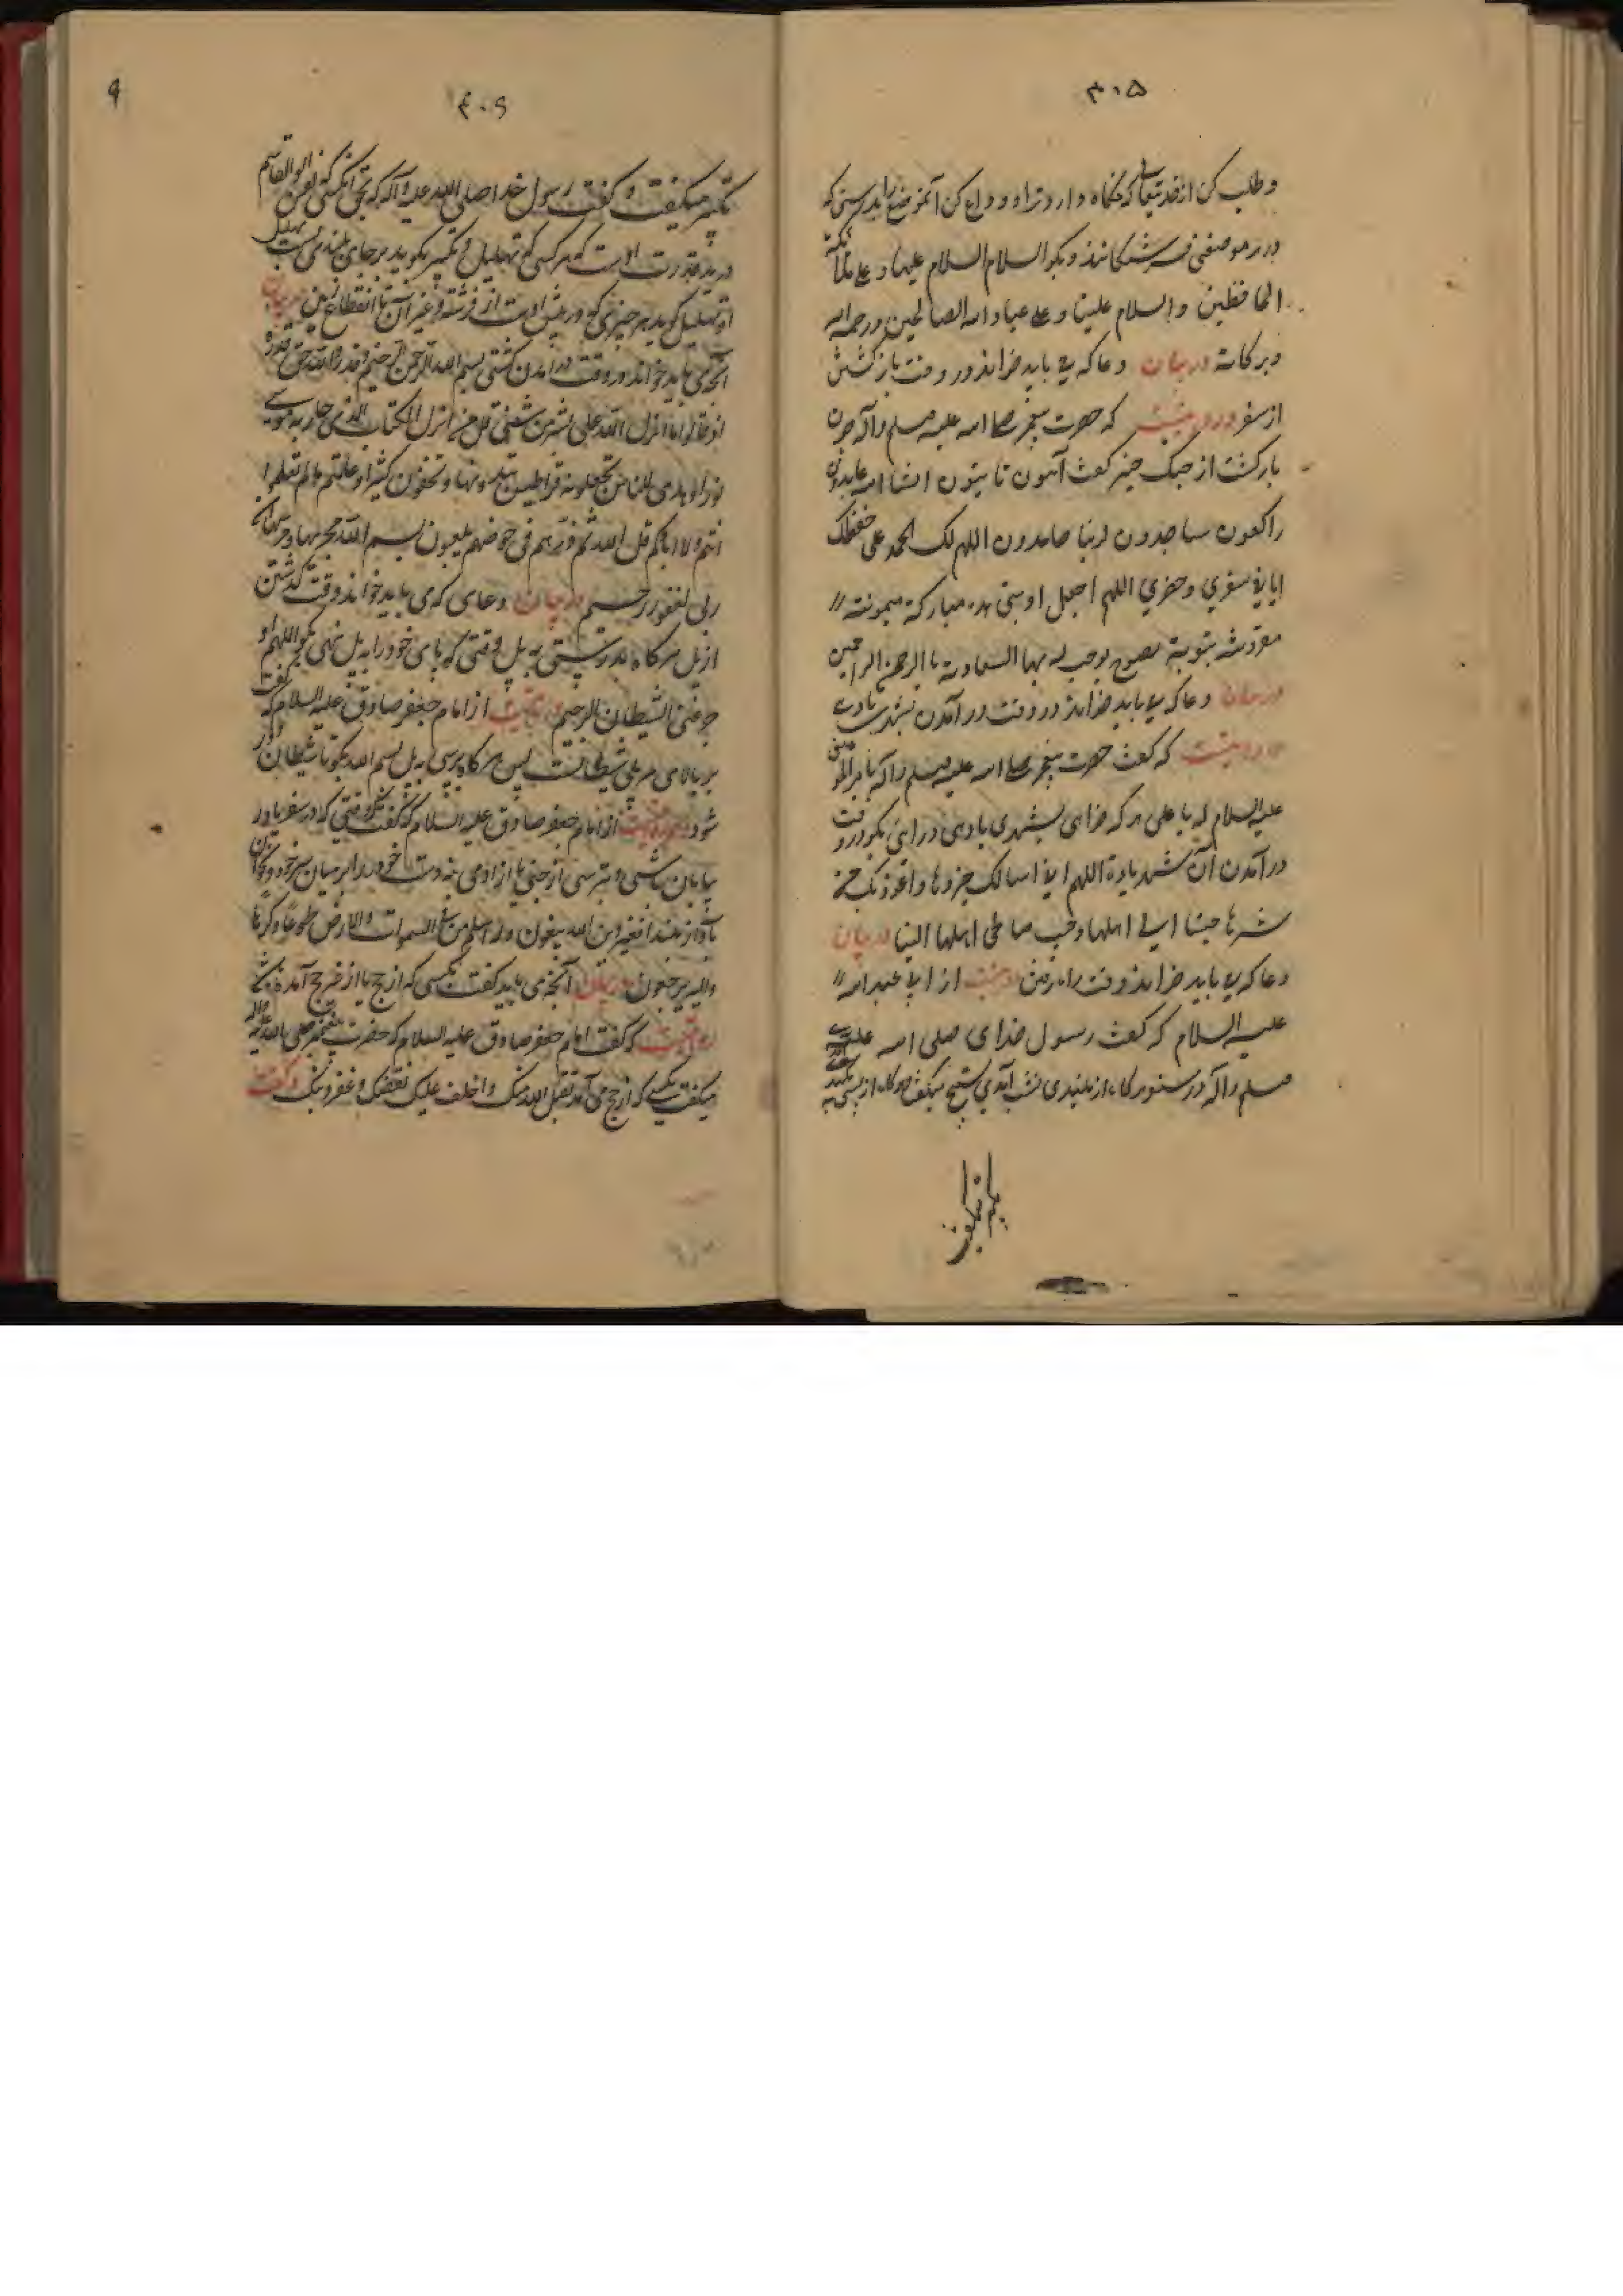 ۳۰۵
و طلب کن از خدیتعالی که نگاه دارد ترا و وداع کن آنموضع را بدرستی که
در هر موضعی فرشتگانند و بگو السلام السلام علیها و علی ملائکه
الحافظین والسلام علینا و علی عباد الله الصالحین و رحمة الله
و برکاته در بیان دعا که می باید خواند در وقت بازگشتن
از سفر که حضرت پیغمبر صلی الله علیه و سلم و آله چون
بازگشت از جنک خیبر گفت آئبون تائبون انشا الله عابدون
راکعون ساجدون لربنا حامدون اللهم لک الحمد علی حفظک
ایای فی سفری و حضری اللهم اجعل اوبتی هذه مبارکة میمونة
مقرونة بتوبة نصوح توجب لی بها السعادة یا ارحم الراحمین
در بیان دعا که می باید خواند در وقت در آمدن بشهری یا دهی
که گفت حضرت پیغمبر صلی الله علیه و سلم و آله با امیر المؤمنین
علیه السلام که یا علی هر که خواهی بشهری یا دهی در آئی بگو در وقت
در آمدن آن شهر یا ده اللهم انی اسالک خیرها و اعوذ بک من
شرها حببنا الی اهلها و حبب صالحی اهلها الینا در بیان
دعا که می باید خواند وقت راه رفتن از ابی عبد الله
علیه السلام که گفت رسول خدای صلی الله علیه
سلم و آله در سفر هر گاه از بلندی نشیب آمدی تسبیح میگفت و هر گاه از
۳۰۶
تکبیر میگفت و گفت رسول خدا صلی الله علیه و آله که بحق آنکسی که نفس ابو القاسم
در ید قدرت اوست که هر کسی که تهلیل و تکبیر بگوید بر جای بلندی
او تهلیل گوید هر چیزی که در پیش اوست از فرشته و غیر آن تا انقطاع زمین در بیان
آنچه می باید خواند در وقت در آمدن کشتی بسم الله الرحمن الرحیم و ما قدروا الله حق قدره
اذ قالوا ما انزل الله علی بشر من شئی قل من انزل الکتاب الذی جاء به موسی
نورا و هدی للناس تجعلونه قراطیس تبدونها و تخفون کثیرا و علمتم ما لم تعلموا
انتم و لا اباؤکم قل الله ثم ذرهم فی خوضهم یلعبون بسم الله مجریها و مرسیها ان
ربی لغفور رحیم در بیان دعای که می باید خواند وقت گذشتن
از پل هر گاه بدرستی به پل وقتی که پای خود را به پل نهی بگو اللهم
الشیطان الرجیم از امام جعفر صادق علیه السلام که گفت
بر بالای هر پلی شیطانست پس هر گاه برسی به پل بسم الله بگو تا شیطان از تو دور
شود از امام جعفر صادق علیه السلام که گفت وقتی که در سفر یا در
بیابان باشی و بترسی از جنی یا از ادمی بنه دست خود را بر میان سر خود و بخوان
بآواز بلند افغیر دین الله یبغون و له اسلم من فی السموات و الارض طوعا و کرها
و الیه یرجعون در بیان آنچه می باید گفت بکسی که از حج یا از غیر حج آمده باشد
که گفت امام جعفر صادق علیه السلام که حضرت پیغمبر صلی الله علیه و آله
میگفت بکسی که از حج می آمد تقبل الله منک و اخلف علیک نفقتک و غفر ذنبک